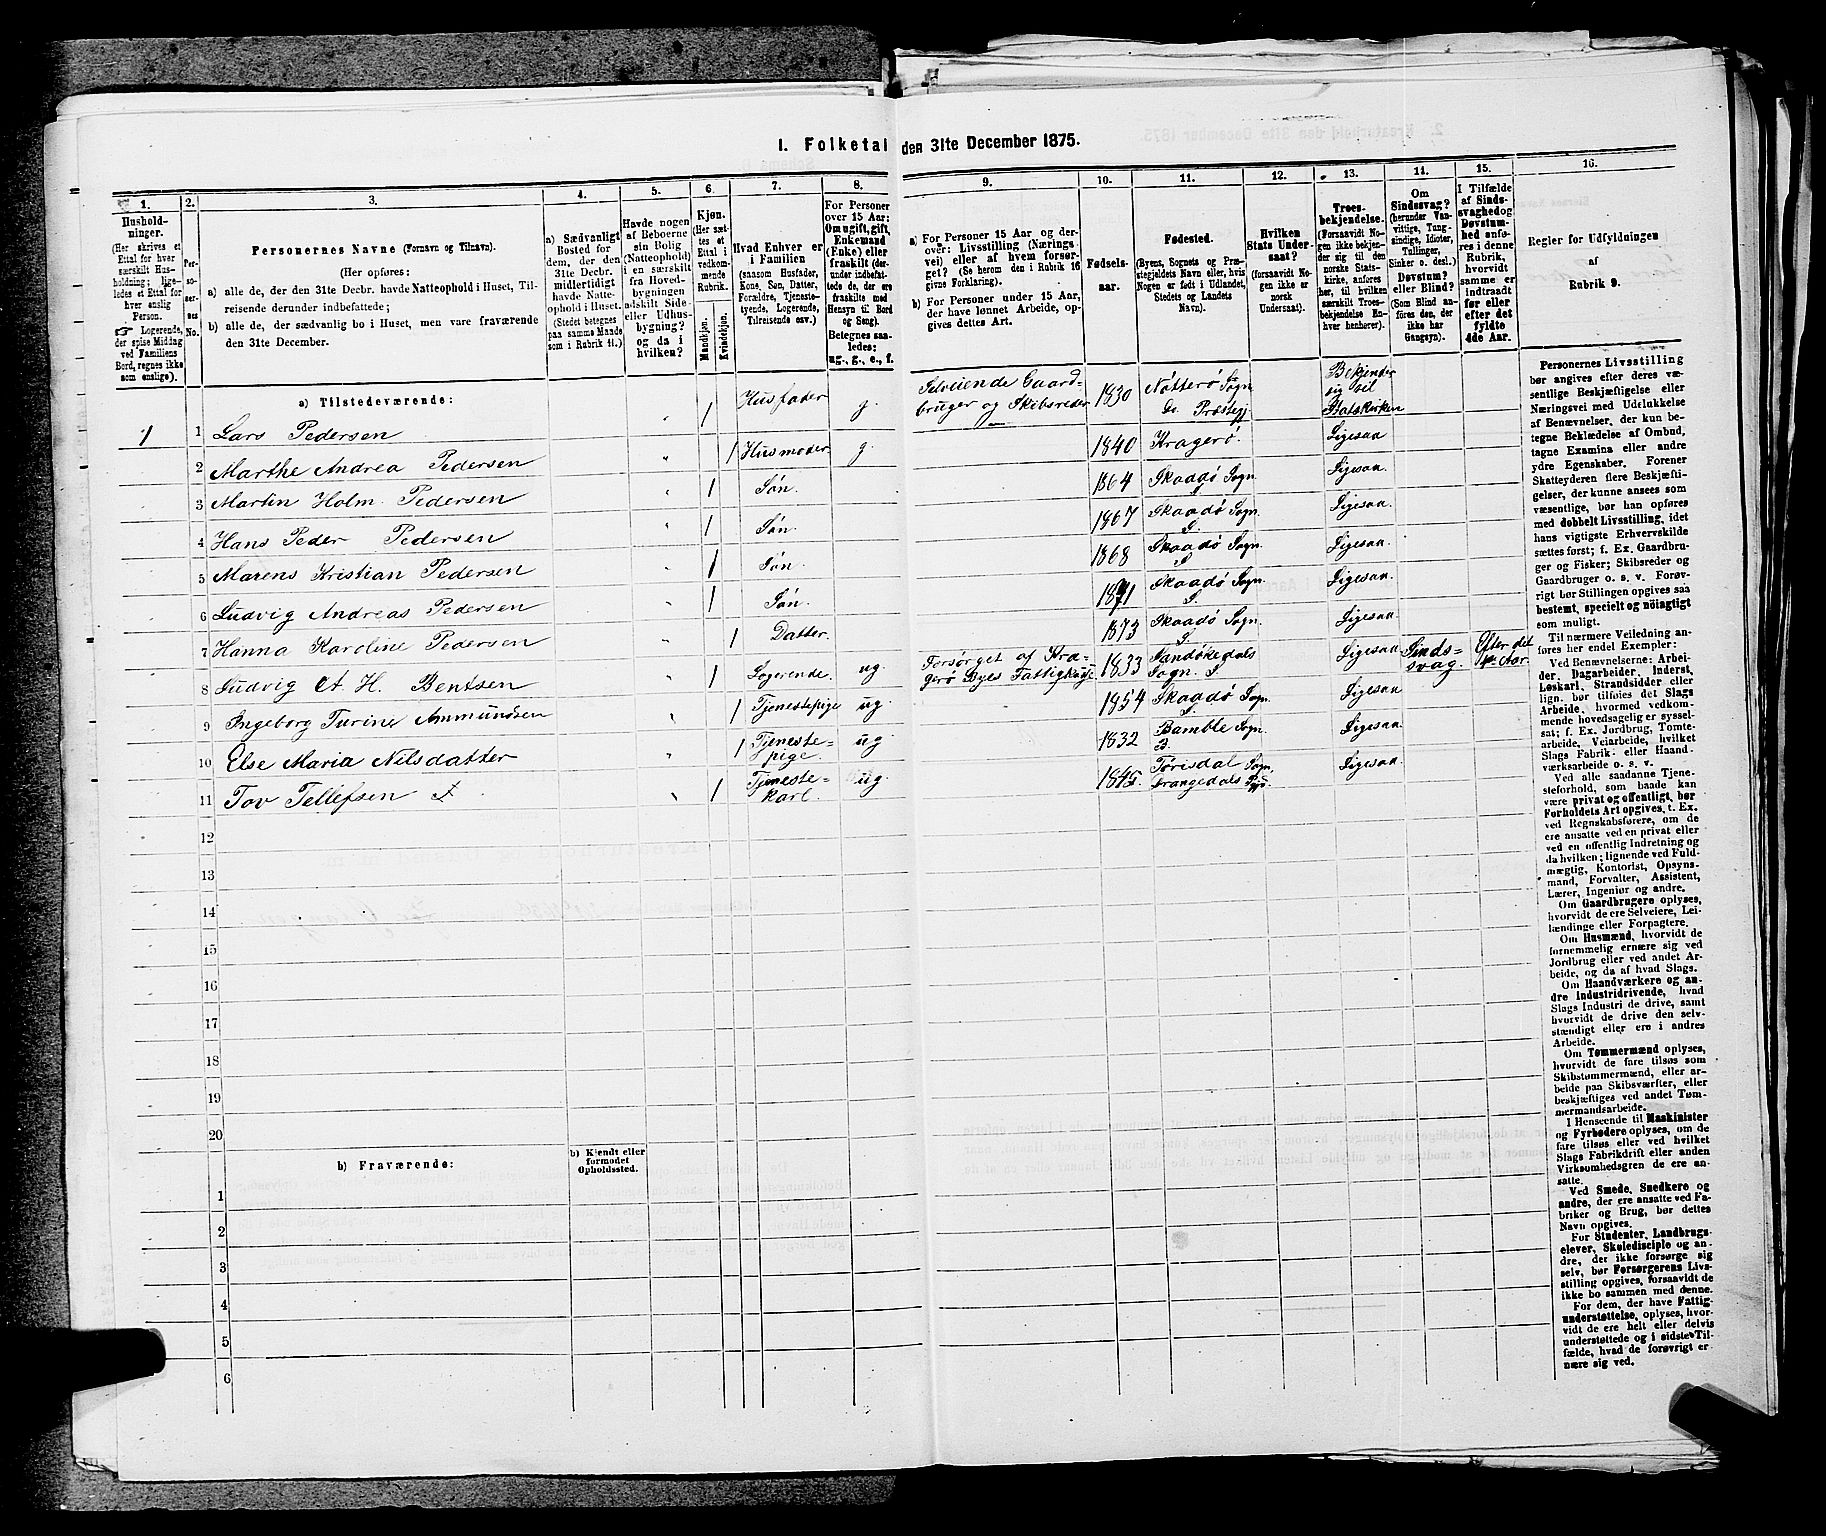 1. Folketal den 31te December 1875.
1.
Hushold-
ninger.
(Her skrives et
Ettal for hver
særskilt Hus-
holdning; lige-
ledes et Ettal for
hver enslig
Person.
☞ Logerende,
der spise Middag
ved Familiens
Bord, regnes ikke
som enslige).
2.
Per-
so-
ner-
nes
No.
3.
Personernes Navne (Fornavn og Tilnavn).
(Her opføres:
a) alle de, der den 31te Decbr. havde Natteophold i Huset, Til-
reisende derunder indbefattede;
b) alle de, der sædvanlig bo i Huset, men vare fraværende
den 31te December.
4.
a) Sædvanligt
Bosted for
dem, der den
31te Decbr.
midlertidigt
havde Natte-
ophold i Huset.
(Stedet betegnes
paa samme Maade
som i Rubrik 11.)
5.
Havde nogen
af Beboerne
sin Bolig
(Natteophold)
i en særskilt
fra Hoved-
bygningen
adskilt Side-
eller Udhus-
bygning?
og da i
hvilken?
6.
Kjøn.
(Her sæt-
tes et
Ettal i
vedkom-
mende
Rubrik.
Mandkjøn.
Kvindekjøn.
7.
Hvad Enhver er
i Familien
(saasom Husfader,
Kone, Søn, Datter,
Forældre, Tjeneste-
tyende, Logerende,
Tilreisende osv.)
8.
For Personer
over 15 Aar:
Om ugift, gift,
Enkemand
(Enke) eller
fraskilt (der-
under indbefat-
tede de, der ere
fraskilte med
Hensyn til Bord
og Seng).
Betegnes saa-
ledes:
ug., g., e., f.
9.
a) For Personer 15 Aar og der-
over: Livsstilling (Nærings-
vei) eller af hvem forsør-
get? (Se herom den i Rubrik 16
givne Forklaring).
b) For Personer under 15 Aar,
der have lønnet Arbeide, op-
gives dettes Art.
10.
Fødsels-
aar.
11.
Fødested.
(Byens, Sognets og Præ-
stegjeldets Navn eller, hvis
Nogen er født i Udlandet,
Stedets og Landets
Navn).
12.
Hvilken
Stats Under-
saat?
(forsaavidt No-
gen ikke er
norsk
Undersaat).
13.
Troes-
bekjendelse.
(Forsaavidt No-
gen ikke bekjen-
der sig til den
norske Stats-
kirke, anføres
her, til hvilken
særskilt Troes-
bekjendelse En-
hver henhører).
14.
Om
Sindssvag?
(herunder Van-
vittige, Tung-
sindige, Idioter,
Tullinger,
Sinker o. desl.)
Døvstum?
eller Blind?
(Som Blind an-
føres den, der
ikke har
Gangsyn).
15.
I Tilfælde
af Sinds-
svaghed og
Døvstum-
hed anfø-
res i denne
Rubrik,
hvorvidt
samme er
indtraadt
før eller
efter det
fyldte
4de Aar.
16.
Regler for Udfyldningen
af
Rubrik 9.
a) Tilstedeværende:
1 1 Lars Pedersen " 1 Husfader g. Selveiende Gaard-
bruger og Skibsreder 1830 Nøtterø Sogn
do. Præstegj. Bekjender
sig til
Statskirken
2 Marthe Andrea Pedersen " 1 Husmoder g 1840 Kragerø. Ligesaa
3 Martin Holm Pedersen " 1 Søn. 1864 Skaadø Sogn
S. Ligesaa.
4 Hans Peder Pedersen " 1 Søn. 1867 Skaadø Sogn.
S. Ligesaa.
5 Marens Kristian Pedersen " 1 Søn. 1868 Skaadø Sogn.
S. Ligesaa.
6 Ludvig Andreas Pedersen " 1 Søn. 1871 Skaadø Sogn.
S. Ligesaa.
7 Hanna Karoline Pedersen " 1 Datter. 1873 Skaadø Sogn.
S. Ligesaa
8 Ludvig A. H. Bentsen " 1 Logerende. ug. Forsørget af Kra-
gerø Byes Fattigkasse 1833 Sandøkedals
Sogn. S. Ligesaa Sinds-
svag. Efter det
4de Aar.
9 Ingeborg Turine Ammundsen " 1 Tjenestepige ug. 1854 Skaadø Sogn.
S. Ligesaa.
10 Else Maria Nilsdatter " 1 Tjeneste-
pige. ug 1832 Bamble Sogn.
B. Ligesaa.
11 Tov Tellefsen " 1 Tjeneste-
karl. ug 1845. Tørisdal Sogn
Drangedals Ligesaa.
12
13
14
15
16
17
18
19
20
b) Fraværende:
b) Kjendt eller
formodet
Opholdssted.
1
2
3
4
5
6
Personernes Livsstilling
bør angives efter deres væ-
sentlige Beskjæftigelse eller
Næringsvei med Udelukkelse
af Benævnelser, der kun be-
tegne Beklædelse af Ombud,
tagne Examina eller andre
ydre Egenskaber. Forener
Skatteyderen flere Beskjæfti-
gelser, der kunne ansees som
væsentlige, bør han opføres
med dobbelt Livsstilling, idet
hans vigtigste Erhvervskilde
sættes først; f. Ex. Gaardbru-
ger og Fisker; Skibsreder og
Gaardbruger o. s. v. Forøv-
rigt bør Stillingen opgives saa
bestemt, specielt og nøiagtigt
som muligt.
Til nærmere Veiledning an-
føres her endel Exempler:
Ved Benævnelserne: Arbei-
der, Dagarbeider, Inderst,
Løskarl, Strandsidder eller
lign. bør tilføies det Slags
Arbeide, hvormed vedkom-
mende hovedsagelig er syssel-
sat; f. Ex. Jordbrug, Tomte-
arbeide, Veiarbeide, hvilket
Slags Fabrik- eller Haand-
værksarbeide o. s. v.
Ved alle saadanne Tjene-
steforhold, som baade kan
være privat og offentligt, bør
Forholdets Art opgives, t. Ex.
ved Regnskabsførere, om de
ere ansatte ved en privat eller
ved en offentlig Indretning og
da hvilken; lignende ved Fuld-
mægtig, Kontorist, Opsyns-
mand, Forvalter, Assistent,
Lærer, Ingeniør og andre.
Om Gaardbrugere oplyses,
hvorvidt de ere Selveiere, Lei-
lændinge eller Forpagtere.
Om Husmænd, hvorvidt de
fornemmelig ernære sig ved
Jordbrug eller ved andet Ar-
beide, og da af hvad Slags.
Om Haandværkere og an-
dre Industridrivende, hvad
Slags Industri de drive, samt
hvorvidt de drive den selv-
stændigt eller ere i andres
Arbeide.
Om Tømmermænd oplyses,
hvorvidt de fare tilsøs som
Skibstømmermænd, eller ar-
beide paa Skibsværfter, eller
beskjæftiges ved andet Tøm-
mermandsarbeide.
I Henseende til Maskinister
og Fyrbødere oplyses, om de
fare tilsøs eller ved hvilket
Slags Fabrikdrift eller anden
Virksomhedsgren de ere an-
satte.
Ved Smede, Snedkere og
andre, der ere ansatte ved Fa-
briker og Brug, bør dettes
Navn opgives.
For Studenter, Landbrugs-
elever, Skoledisciple og an-
dre, der ikke forsørge sig
selv, bør Forsørgerens Livs-
stilling opgives, forsaavidt de
ikke bo sammen med denne.
For dem, der have Fattig-
understøttelse, oplyses, hvor-
vidt de ere helt eller delvis
understøttede og i sidste Til-
fælde, hvad de forøvrigt er-
nære sig ved.